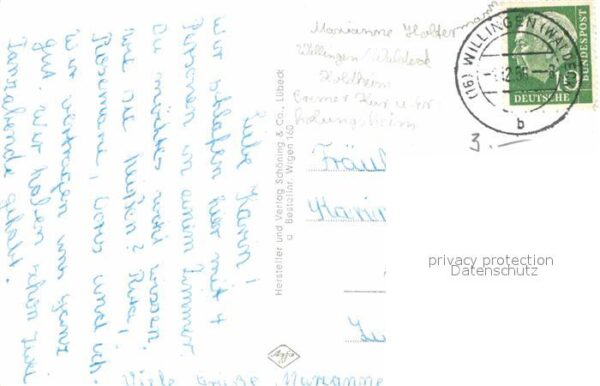 Marianne Haltermann
Willingen/Waldeck
Holtheim
Bremer Kur u. Er-
holungsheim
(16) WILLINGEN (WALDECK)
b
10
DEUTSCHE BUNDESPOST
3.—
Fräul
Karin
privacy protection
Datenschutz
Hersteller und Verlag Schöning & Co., Lübeck
Bestellnr. Wigen 160
Agfa
Liebe Karin!
wir schlafen hier mit 4
Personen in einem Zimmer.
Du möchtest wohl wissen,
wer sie sind? Rita,
Rosemarie, Doris und ich.
Wir vertragen uns ganz
gut. Wir haben schon zwei
Tanzabende gehabt.
Viele Grüße Marianne